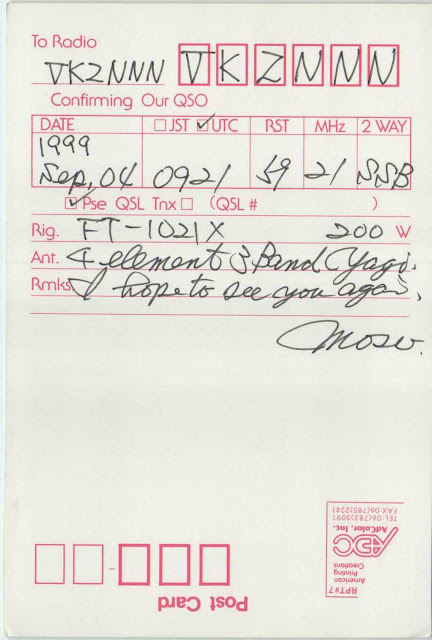 To Radio
VK2NNN VKZNNN
Confirming Our QSO
DATE □ JST ☑ UTC RST MHz 2 WAY
1999
Sep, 04 0921 59 21 SSB
☑ Pse QSL Tnx □ (QSL # )
Rig. FT-1021X 200 W
Ant. 4 element 3 Band Yagi.
Rmks. I hope to see you again,
RPT#7
American
Printing
Creations
ADC
AdColor, Inc.
TEL:06(783)3091
FAX:06(785)2241
Post Card